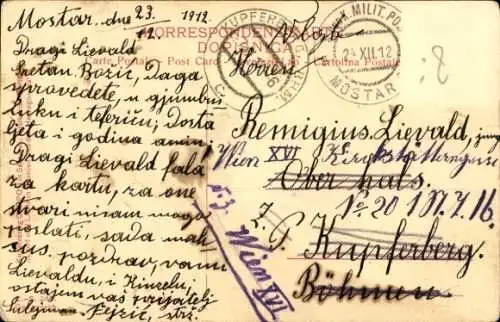 Mostar, dne 23. 1912
12.
Dragi Lievald
Sretan Bozic, daga
sprovedete, u gjumbus
luku i tefericu; dosta
ljeta i godina
Dragi Lievald fala
za kartu, za one
stvari nisam mogo
poslati, sada
pozdrav, vam
Lievaldu, i
ostajem vaš prijatelj
Sulejman Fejzic,
CORRESPONDENZKARTE
DOPISNICA
Carte Postale Post Card Cartolina Postale
KUPFERBERG
K.u.K. MILIT. POST
24 XII. 12
MOSTAR
8
Wohlgb.
Herrn
Remigius Lievald, jung
Wien XVI
Oberhals.
No 20 I St. T. 16.
Z. P. Kupferberg.
Böhmen
Wien XVI